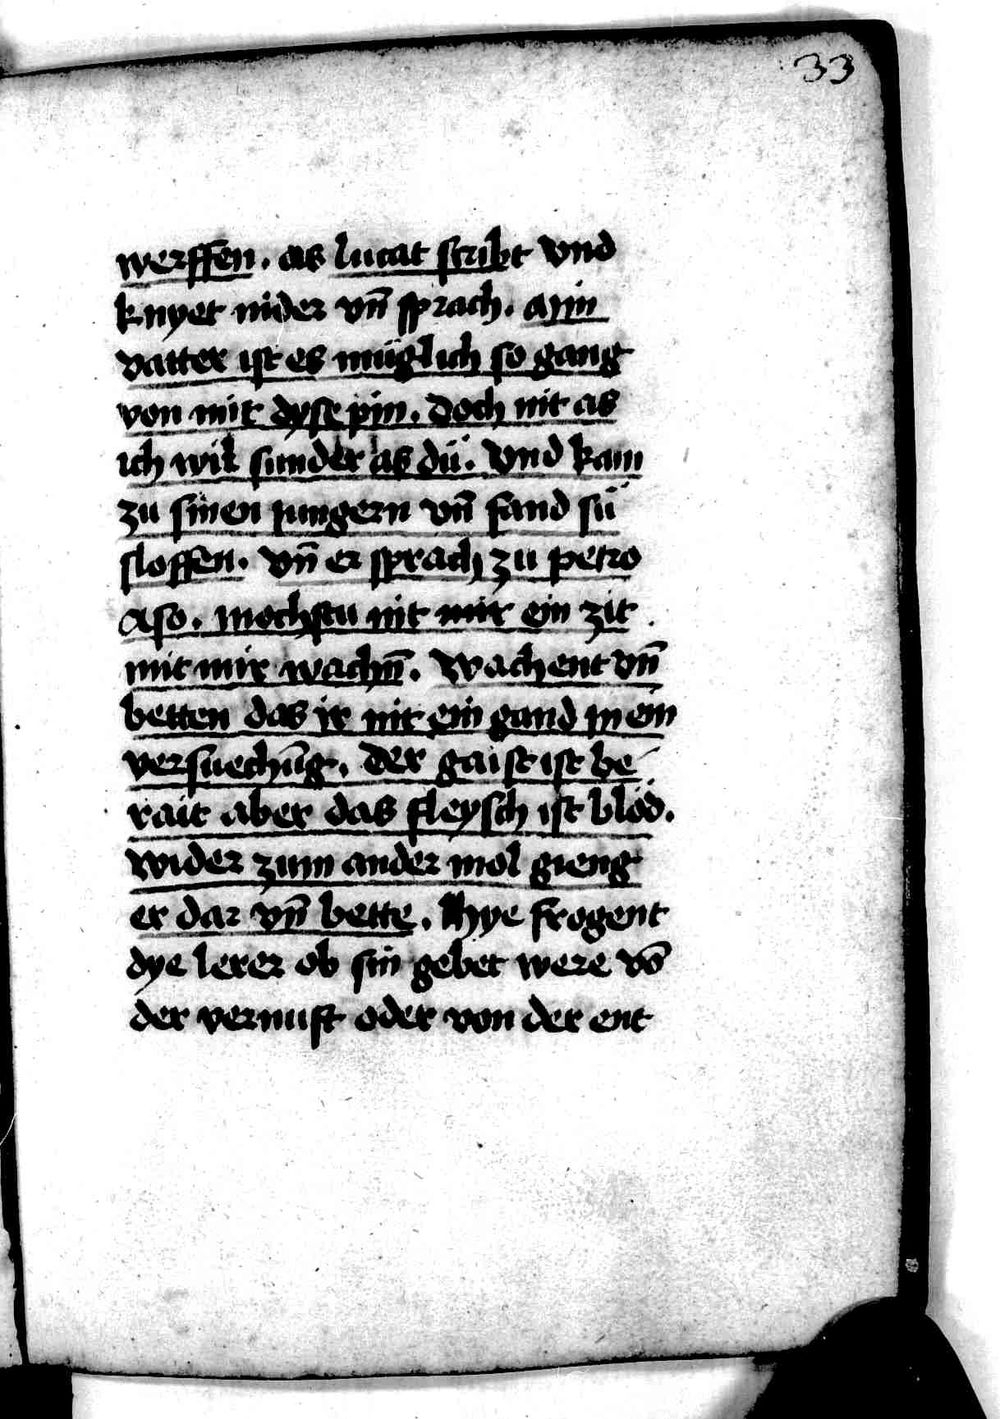 33
werffen. as lucat scribt vnd
knyet nider vn̄ sprach. Min
vatter ist es müglich so gang
von mir dyse pin. doch nit as
ich wil sunder as dü. vnd kam
zu sinen jungern vn̄ fand sü
sloffen. vn̄ er sprach zu petro
Aso. mochstu nit mir ein zit
mit mir wachn̄. Wachent vn̄
betten das ir nit ein gand in ein
versuechūg. der gaist ist be
rait aber das fleysch ist blöd.
wider zum ander mol gieng
er dar vn̄ bette. Hye frogent
dye lerer ob sin gebet were vō
der vernuft oder von der ent